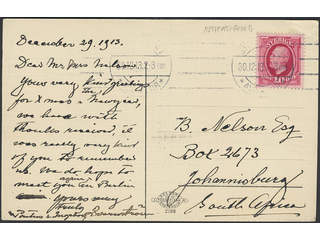 December 29. 1913.
Dear Mr. Mrs Nelson.
Your very kind greetings
for Xmas & Newyear,
we have with
thanks received, it
was really very kind
of you to remember
us. We do hope to
meet you again in Berlin
Yours very
truly
30.12.13
SVERIGE
B. Nelson Esq
Box 2673
Johannisburg
South Africa